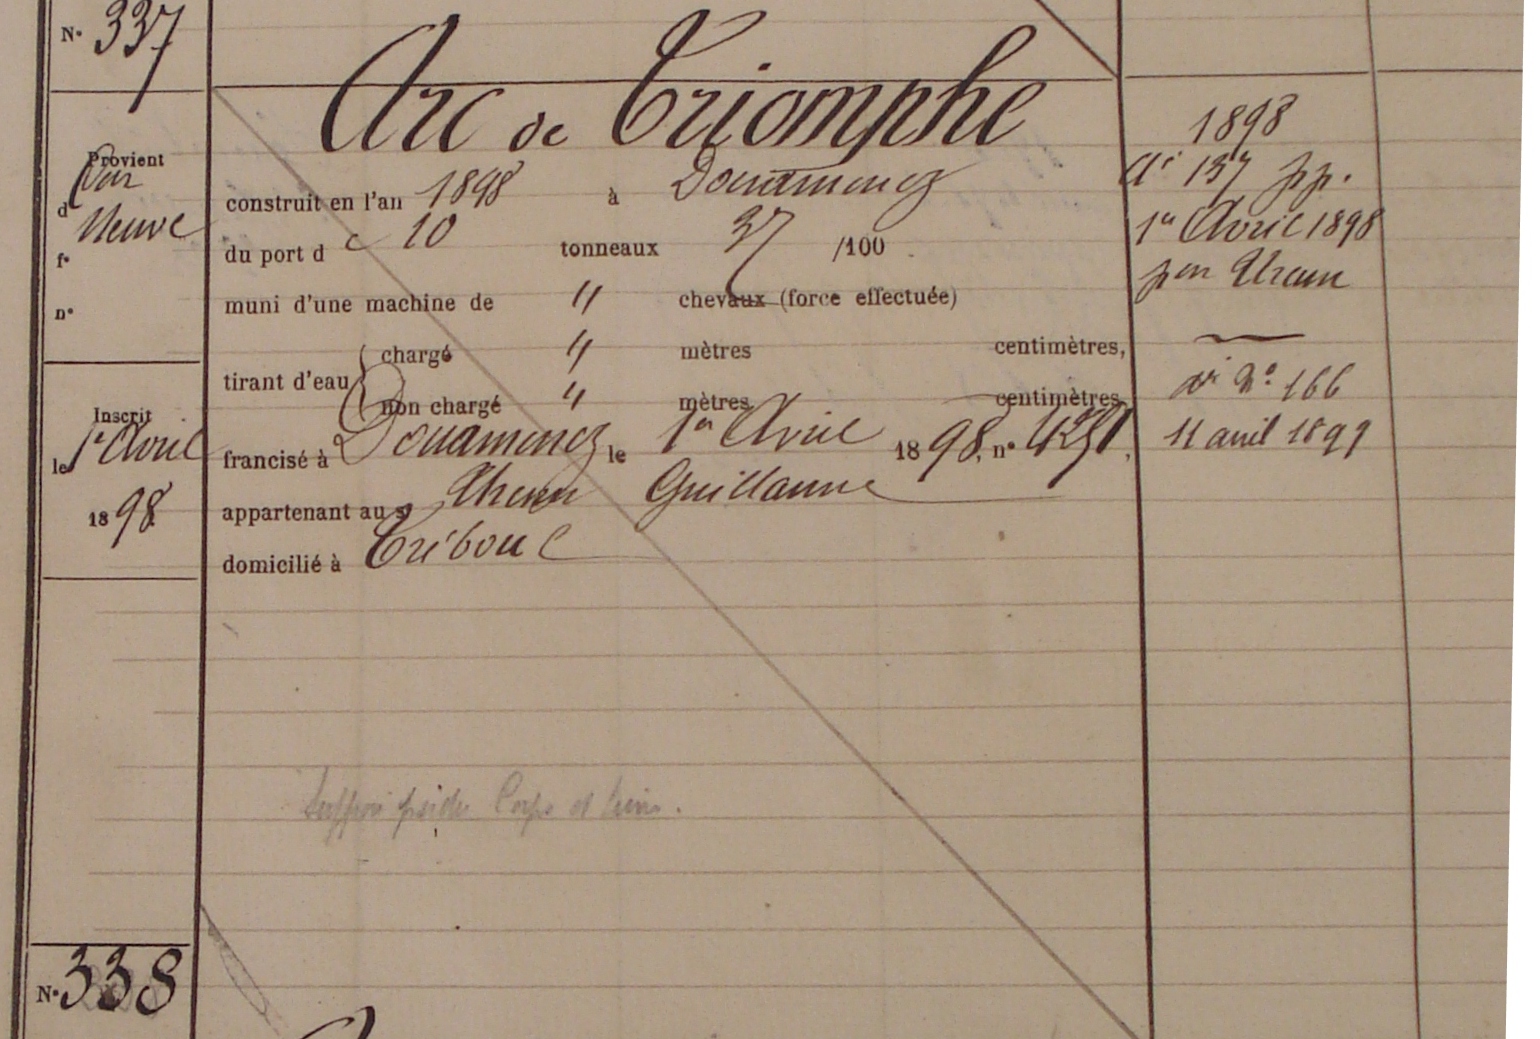 N° 337
Arc de Triomphe
Provient
d
Neuve
f°
n°
construit en l'an 1898 à Douarnenez
du port de 10 tonneaux 37 /100
muni d'une machine de " chevaux (force effectuée)
tirant d'eau
chargé " mètres centimètres,
non chargé " mètres centimètres
francisé à Douarnenez le 1er Avril 1898, n°
appartenant au s Guillaume
domicilié à Tréboul
Inscrit
le 1er Avril
1898
1898
At 137 pp.
1er Avril 1898
par
at N° 166
11 avril 1899
Corps et
N° 338